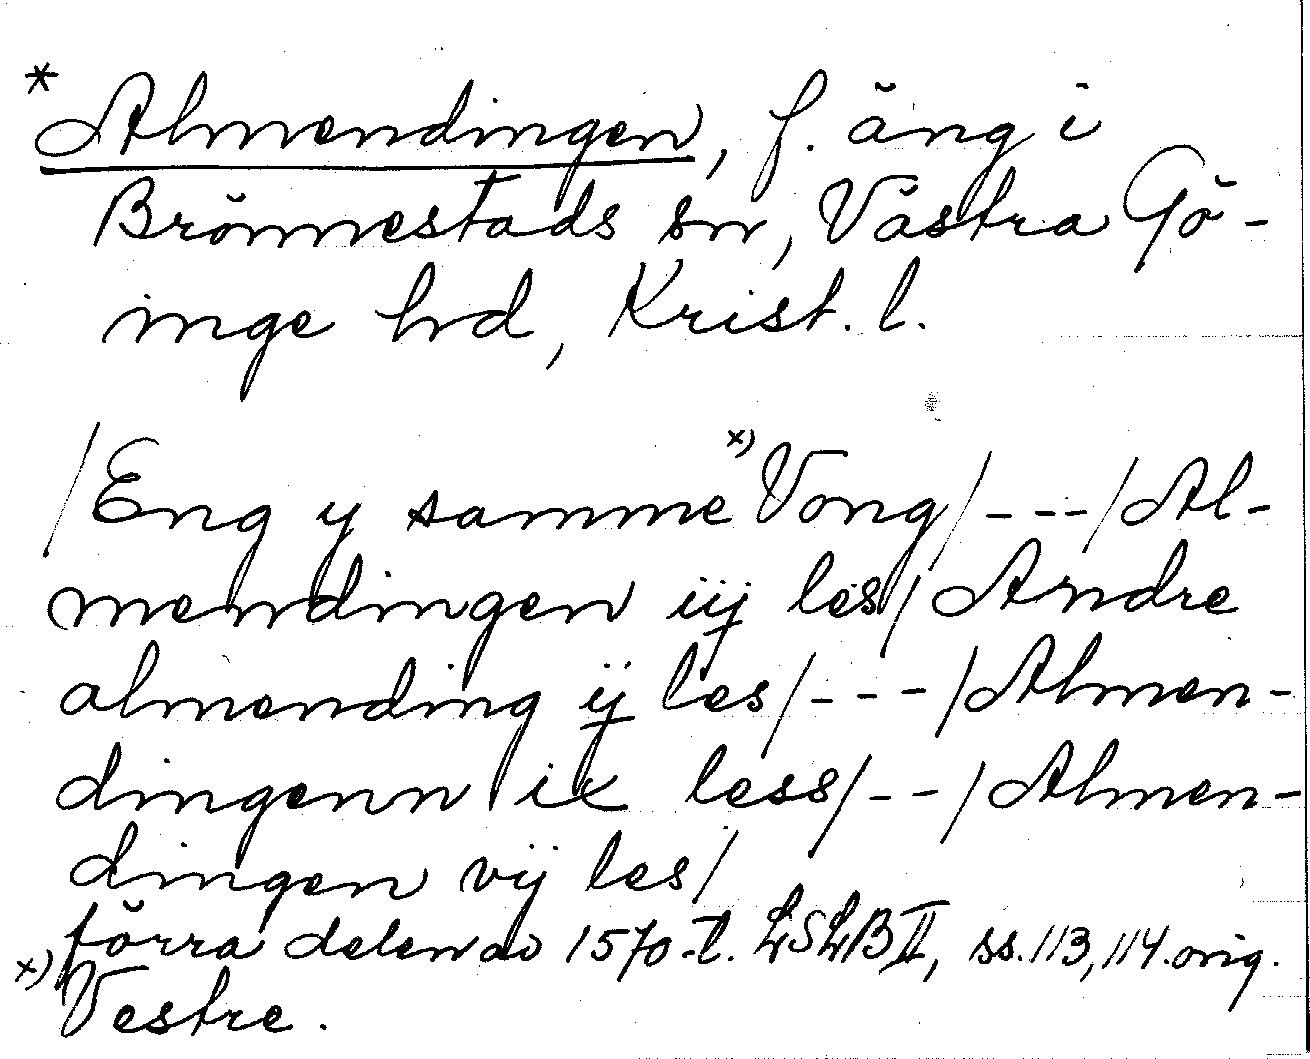 * Almendingen, f. äng i
Brönnestads sn, Västra Gö-
inge hd, Krist. l.
/Eng y samme x) Vong/---/Al-
mendingen iij les/Andre
almending ij les/---/Almen-
dingenn ix less/--/Almen-
dingen vij les/
förra delen av 1570-t. LSLB II, ss. 113, 114. orig.
x) Vestre.